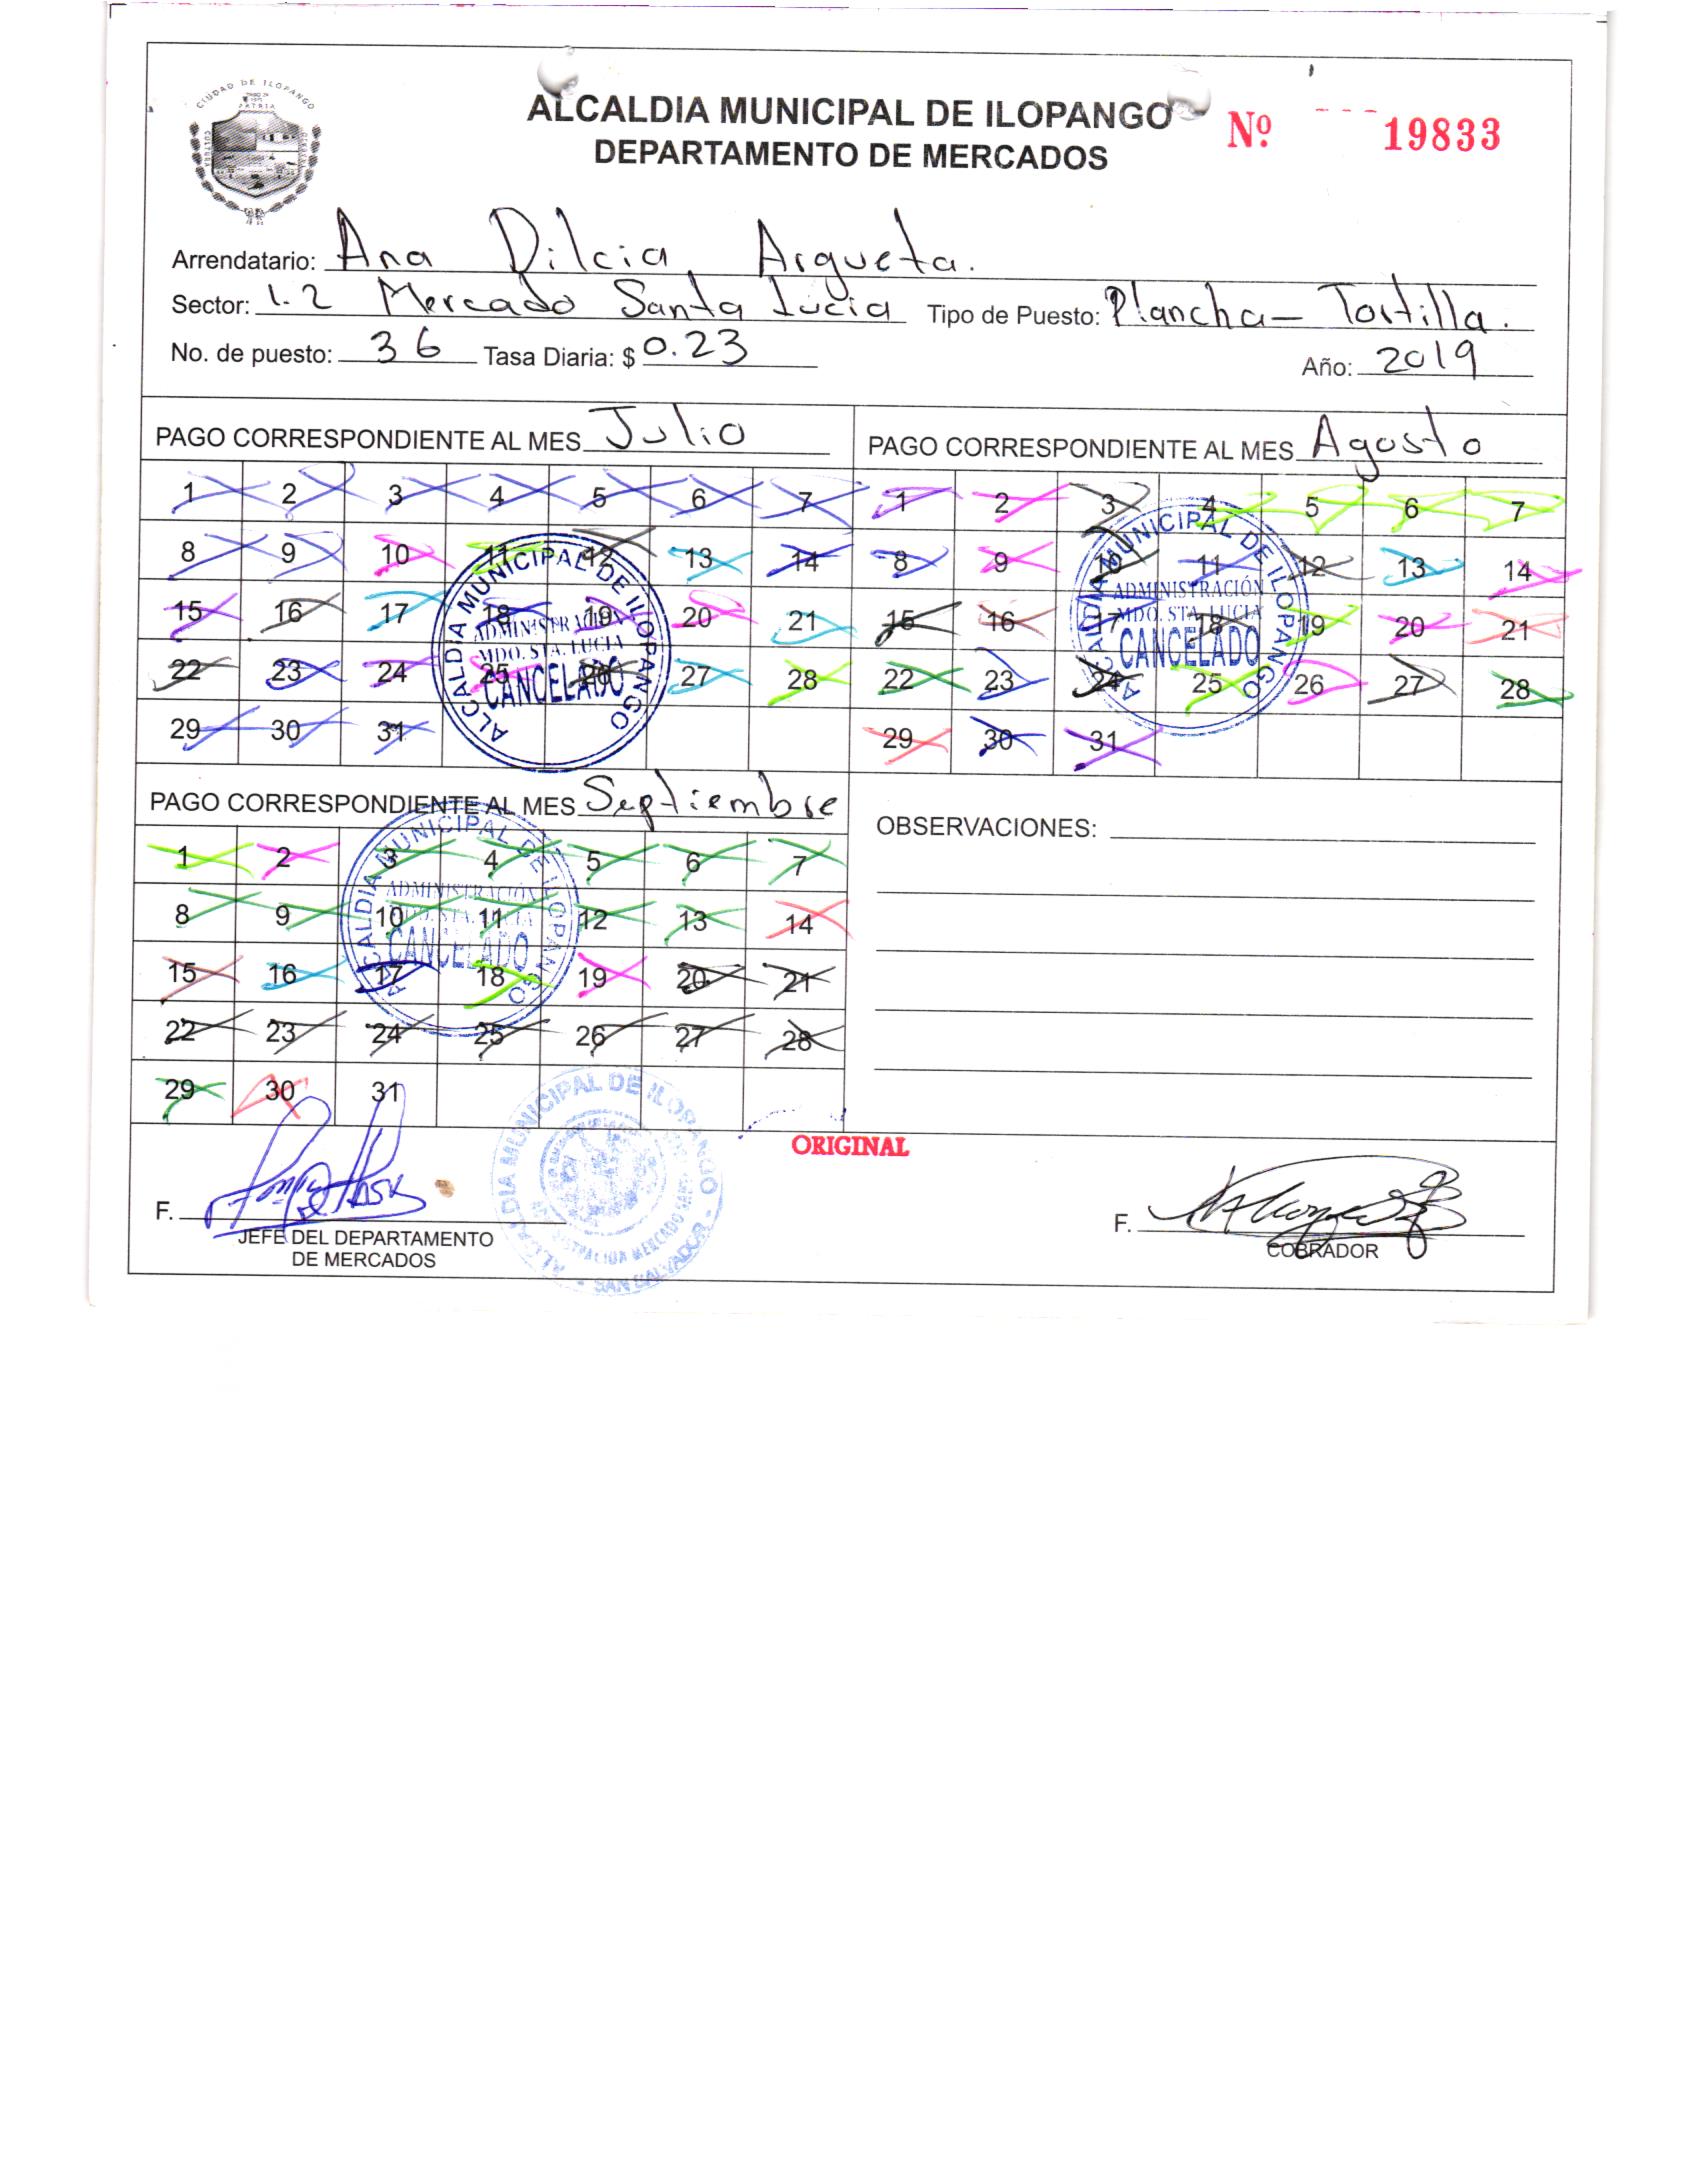 CIUDAD DE ILOPANGO
PATRIA
CULTURA
ALCALDIA MUNICIPAL DE ILOPANGO
DEPARTAMENTO DE MERCADOS
Nº 19833
Arrendatario: Ana Dilcia Argueta.
Sector: 1.2 Mercado Santa Lucia Tipo de Puesto: Plancha - Tortilla.
No. de puesto: 36 Tasa Diaria: $ 0.23 Año: 2019
PAGO CORRESPONDIENTE AL MES Julio
1 2 3 4 5 6 7
8 9 10 11 12 13 14
15 16 17 18 19 20 21
22 23 24 25 26 27 28
29 30 31
ALCALDIA MUNICIPAL DE ILOPANGO
ADMINISTRACIÓN
MDO. STA. LUCIA
CANCELADO
PAGO CORRESPONDIENTE AL MES Agosto
1 2 3 4 5 6 7
8 9 10 11 12 13 14
15 16 17 18 19 20 21
22 23 24 25 26 27 28
29 30 31
ALCALDIA MUNICIPAL DE ILOPANGO
ADMINISTRACIÓN
MDO. STA. LUCIA
CANCELADO
PAGO CORRESPONDIENTE AL MES Septiembre
1 2 3 4 5 6 7
8 9 10 11 12 13 14
15 16 17 18 19 20 21
22 23 24 25 26 27 28
29 30 31
ALCALDIA MUNICIPAL DE ILOPANGO
ADMINISTRACIÓN
MDO. STA. LUCIA
CANCELADO
OBSERVACIONES:
ORIGINAL
F.
JEFE DEL DEPARTAMENTO
DE MERCADOS
ALCALDIA MUNICIPAL DE ILOPANGO
MERCADO
SAN SALVADOR
F.
COBRADOR